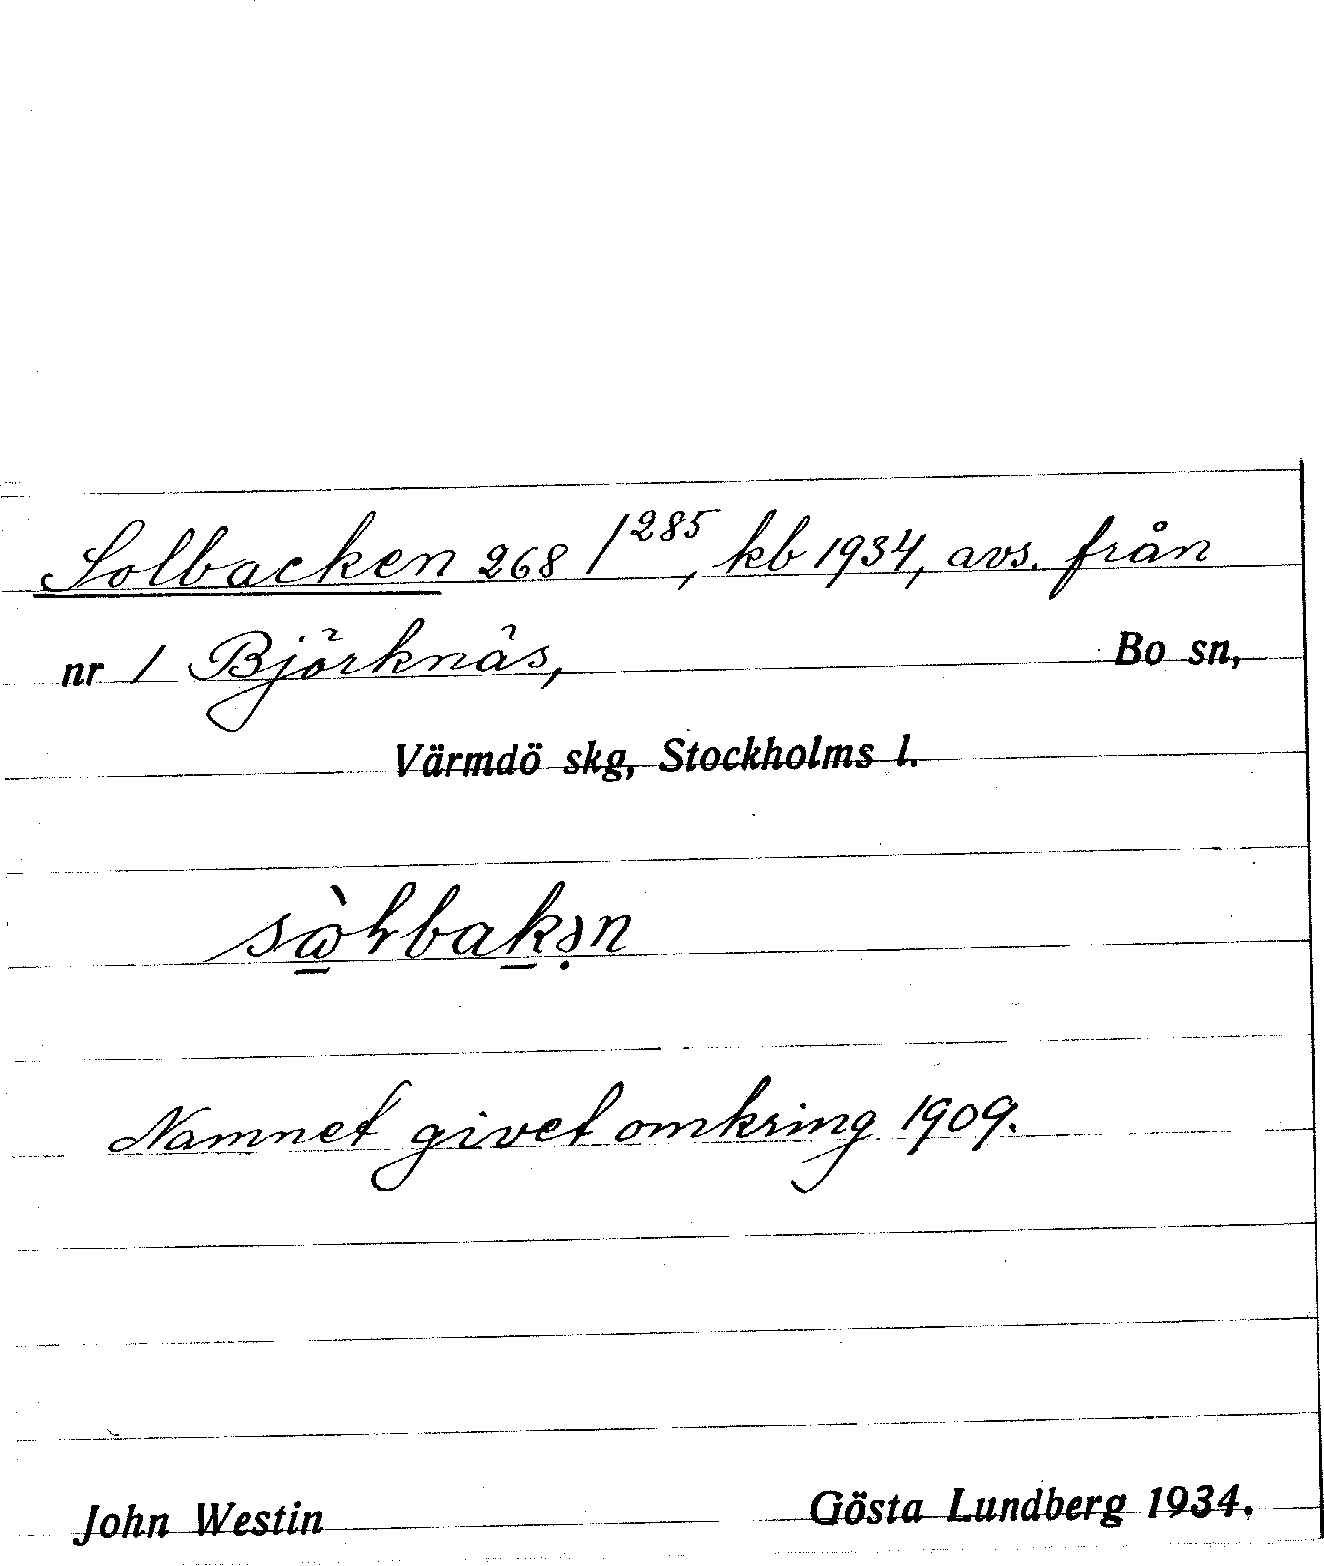 Solbacken 268/285, kb 1934, avs. från
nr 1 Björknäs, Bo sn,
Värmdö skg, Stockholms l.
Namnet givet omkring 1909.
John Westin Gösta Lundberg 1934.